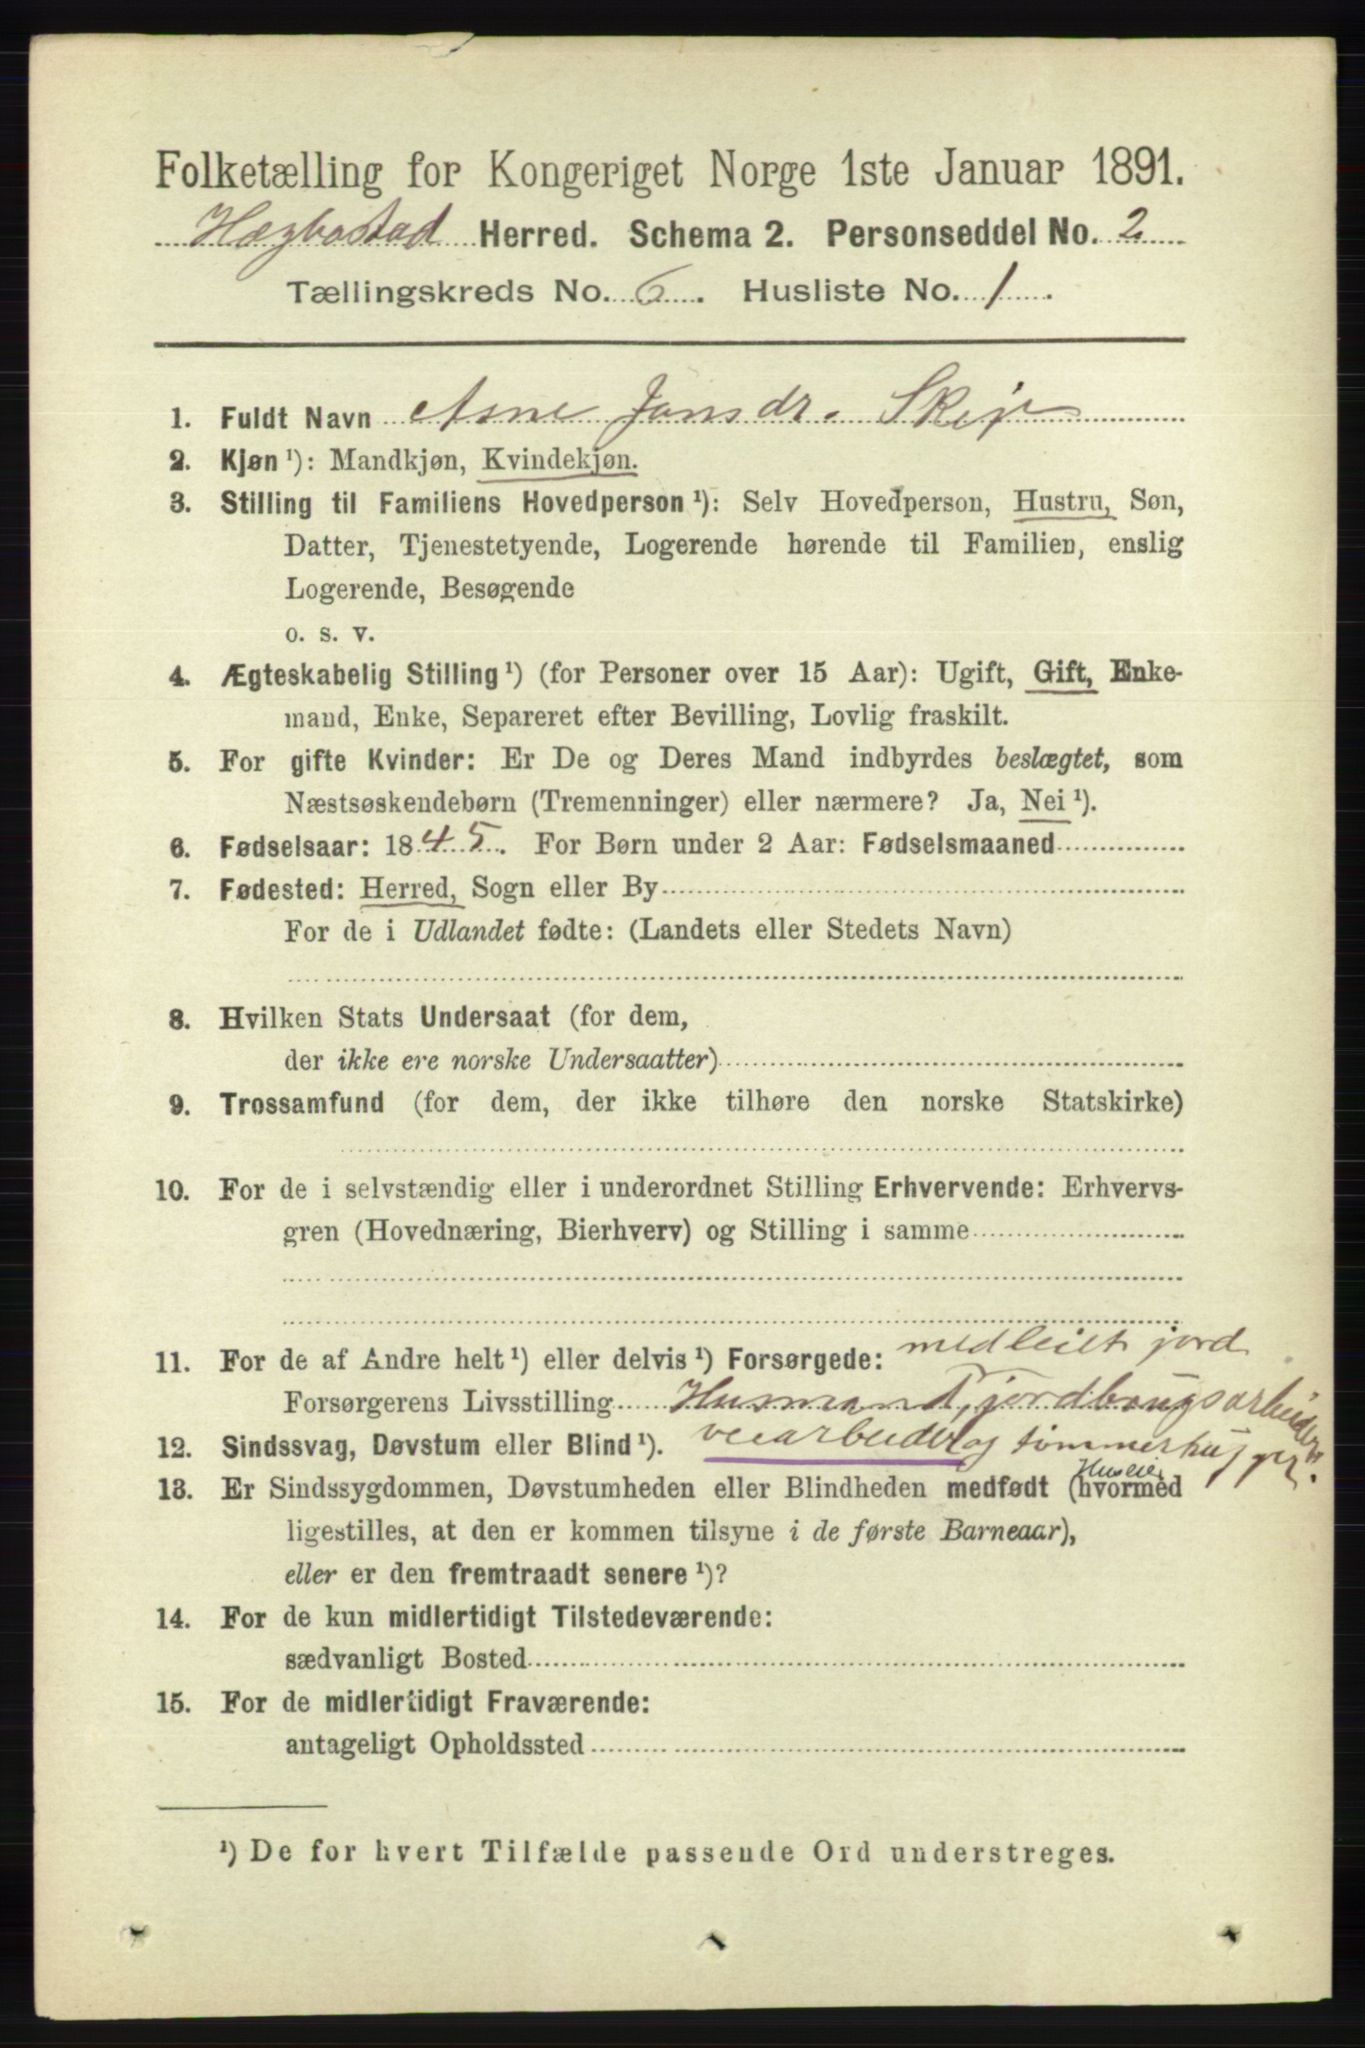 Folketælling for Kongeriget Norge 1ste Januar 1891.
Hægbostad Herred. Schema 2. Personseddel No. 2
Tællingskreds No. 6. Husliste No. 1.
1. Fuldt Navn Asne Jonsdr. Skeje
2. Kjøn ¹): Mandkjøn, Kvindekjøn.
3. Stilling til Familiens Hovedperson ¹): Selv Hovedperson, Hustru, Søn,
Datter, Tjenestetyende, Logerende hørende til Familien, enslig
Logerende, Besøgende
o. s. v.
4. Ægteskabelig Stilling ¹) (for Personer over 15 Aar): Ugift, Gift, Enke-
mand, Enke, Separeret efter Bevilling, Lovlig fraskilt.
5. For gifte Kvinder: Er De og Deres Mand indbyrdes beslægtet, som
Næstsøskendebørn (Tremenninger) eller nærmere? Ja, Nei ¹).
6. Fødselsaar: 1845. For Børn under 2 Aar: Fødselsmaaned
7. Fødested: Herred, Sogn eller By
For de i Udlandet fødte: (Landets eller Stedets Navn)
8. Hvilken Stats Undersaat (for dem,
der ikke ere norske Undersaatter)
9. Trossamfund (for dem, der ikke tilhøre den norske Statskirke)
10. For de i selvstændig eller i underordnet Stilling Erhvervende: Erhvervs-
gren (Hovednæring, Bierhverv) og Stilling i samme
11. For de af Andre helt ¹) eller delvis ¹) Forsørgede: med leiet jord
Forsørgerens Livsstilling Husmand, jordbrugsarbeider
12. Sindssvag, Døvstum eller Blind ¹). veiarbeider og tømmerhugger.
Huseier
13. Er Sindssygdommen, Døvstumheden eller Blindheden medfødt (hvormed
ligestilles, at den er kommen tilsyne i de første Barneaar),
eller er den fremtraadt senere ¹)?
14. For de kun midlertidigt Tilstedeværende:
sædvanligt Bosted
15. For de midlertidigt Fraværende:
antageligt Opholdssted
¹) De for hvert Tilfælde passende Ord understreges.